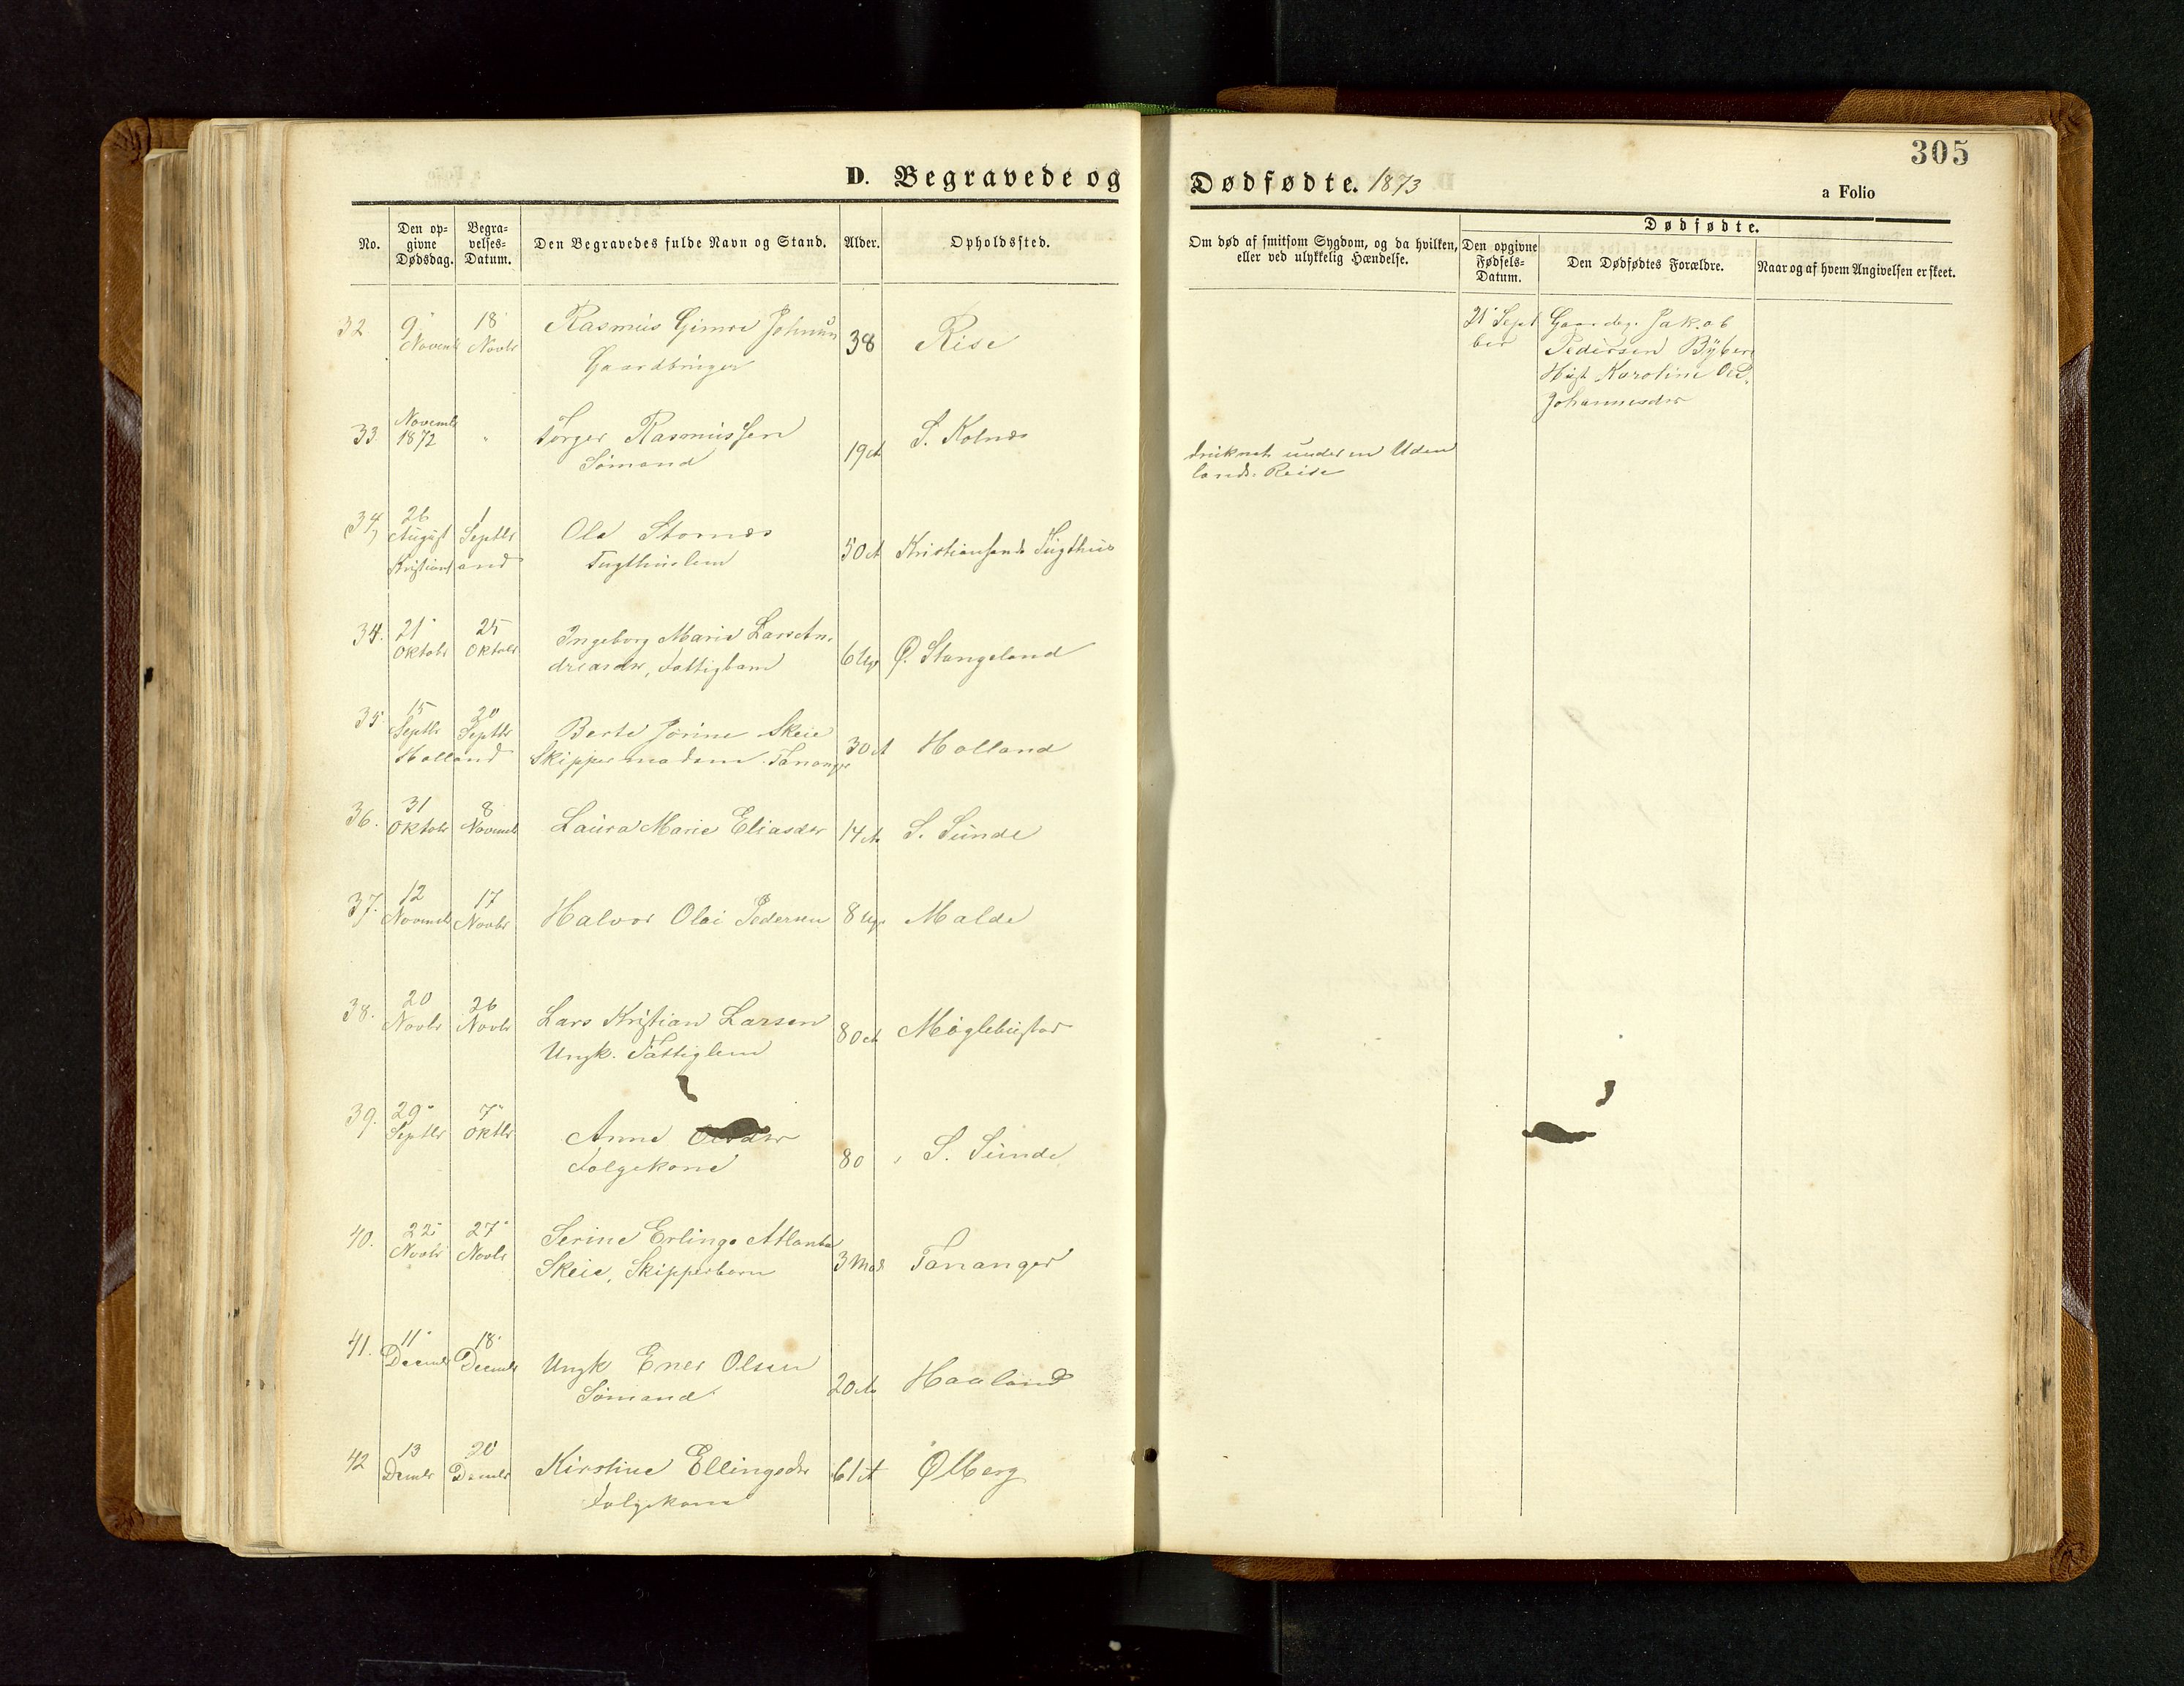 305
D. Begravede og Dødfødte. 1873
a Folio
No.
Den op-
givne
Dødsdag.
Begra-
velses-
Datum.
Den Begravedes fulde Navn og Stand.
Alder.
Opholdssted.
Om død af smitsom Sygdom, og da hvilken,
eller ved ulykkelig Hændelse.
Dødfødte.
Den opgivne
Fødsels-
Datum.
Den Dødfødtes Forældre.
Naar og af hvem Angivelsen er skeet.
32 9' Novemb 18' Novbr Rasmus Gimre
Gaardbruger
38 Rise
21' Sept
ber
Gaardbg. Jakob
Pedersen Byberg
Hust Karoline
Johannesdr
33 Novemb
1872 " Torger Rasmussen
Sømand
19 St. Kolnes
druknet under en Uden
lands Reise
34 26
August 1
Septbr
Kristiansand
Ole Stornes
Tugthuslem
50 Kristiansands Tugthus
34. 21'
Oktobr 25
Oktobr
Ingeborg Marie Lars An-
dreasdr, Fattigbarn
6 Ugr Ø. Stangeland
35 15
Septbr 20
Septbr
Holland
Berte Jorine Skeie
Skippermadam Tananger
30 Holland
36. 31
Oktobr 8
Novemb Laura Marie Eliasdr 14 S. Sunde
37. 12
Novemb 17
Novbr Halvor Olai Pedersen 8 Ugr Malde
38. 20
Novbr 26
Novbr Lars Kristian Larsen
Ungk. Fattiglem
80 Møglebustad
39. 29'
Septbr 7'
Oktbr Anne
Folgekone
80 S. Sunde
40. 22'
Novbr 27'
Novbr Serine Erlinge Atlanta
Skeie, Skipperbarn
3 Md Tananger
41. 11'
Decemb 18'
Decembr Ungk Ener Olsen
Sømand
20 Haaland
42 13
Decmbr 20
Decmbr Kirstine Ellingsdr
Folgekone
61 Ølberg